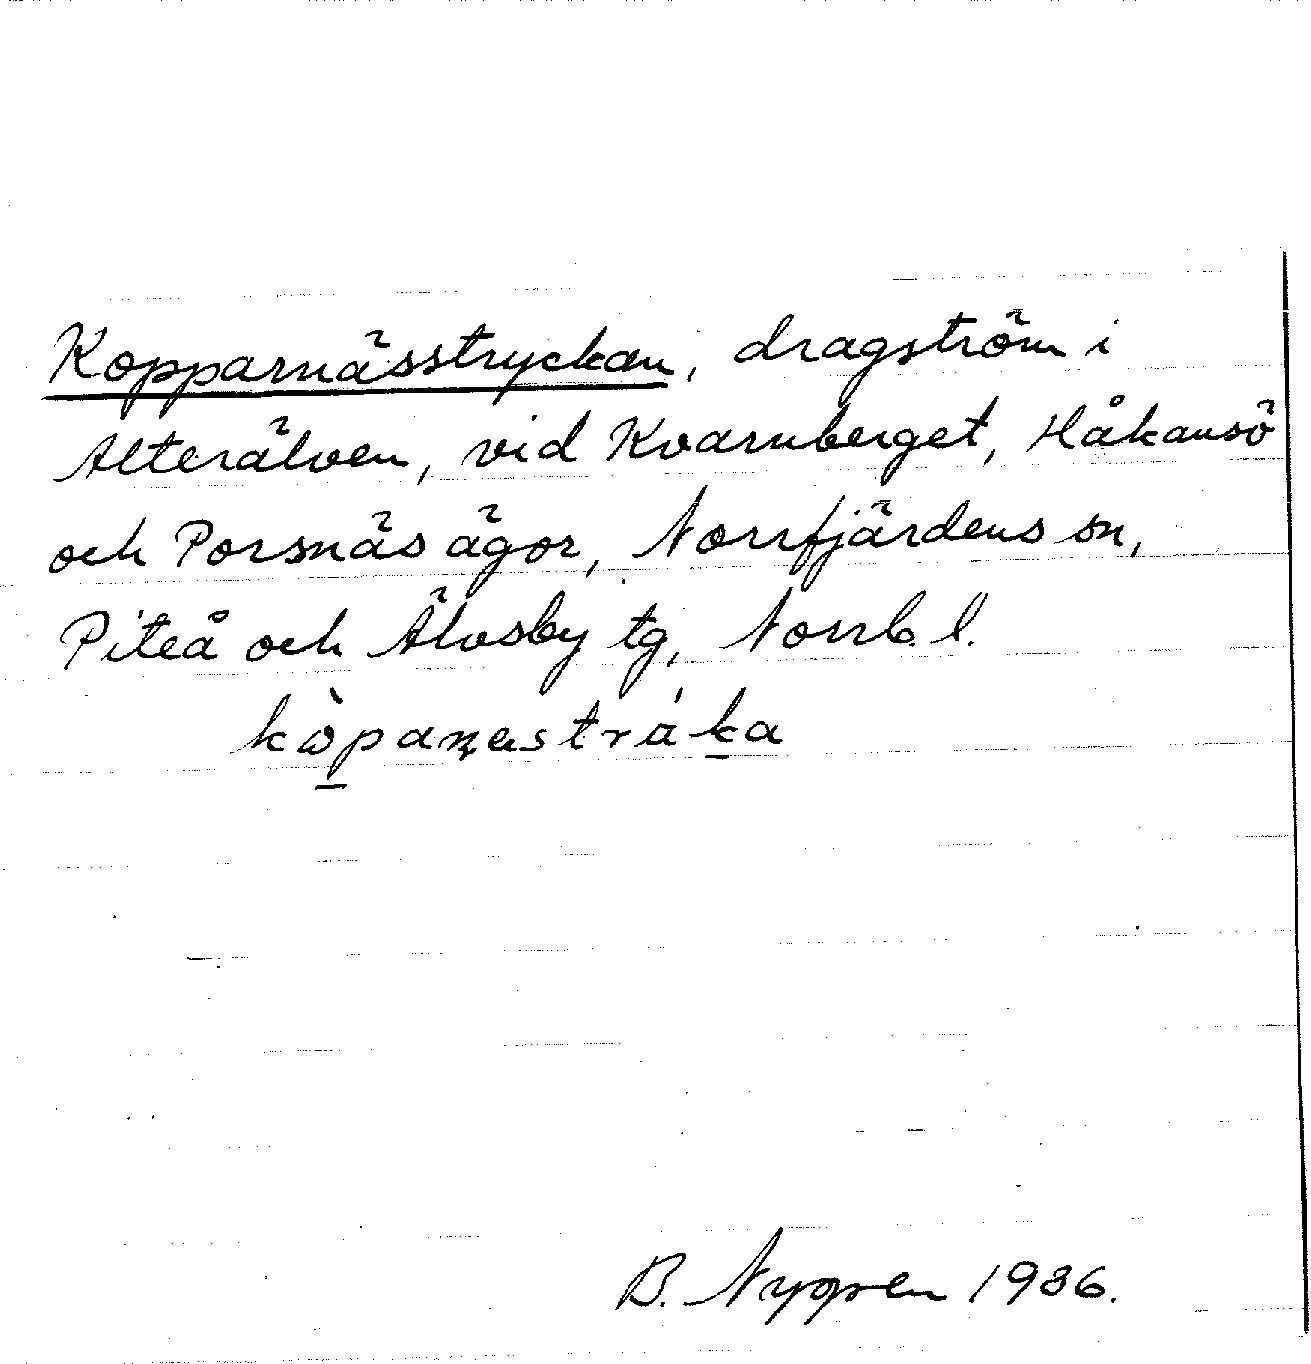 Kopparnässtryckan, dragström i
Alterälven, vid Kvarnberget, Håkansö
och Porsnäs ägor, Norrfjärdens sn,
Piteå och Älvsby tg, Norrb. l.
kòpaɳæstráka
B. Nygren 1936.